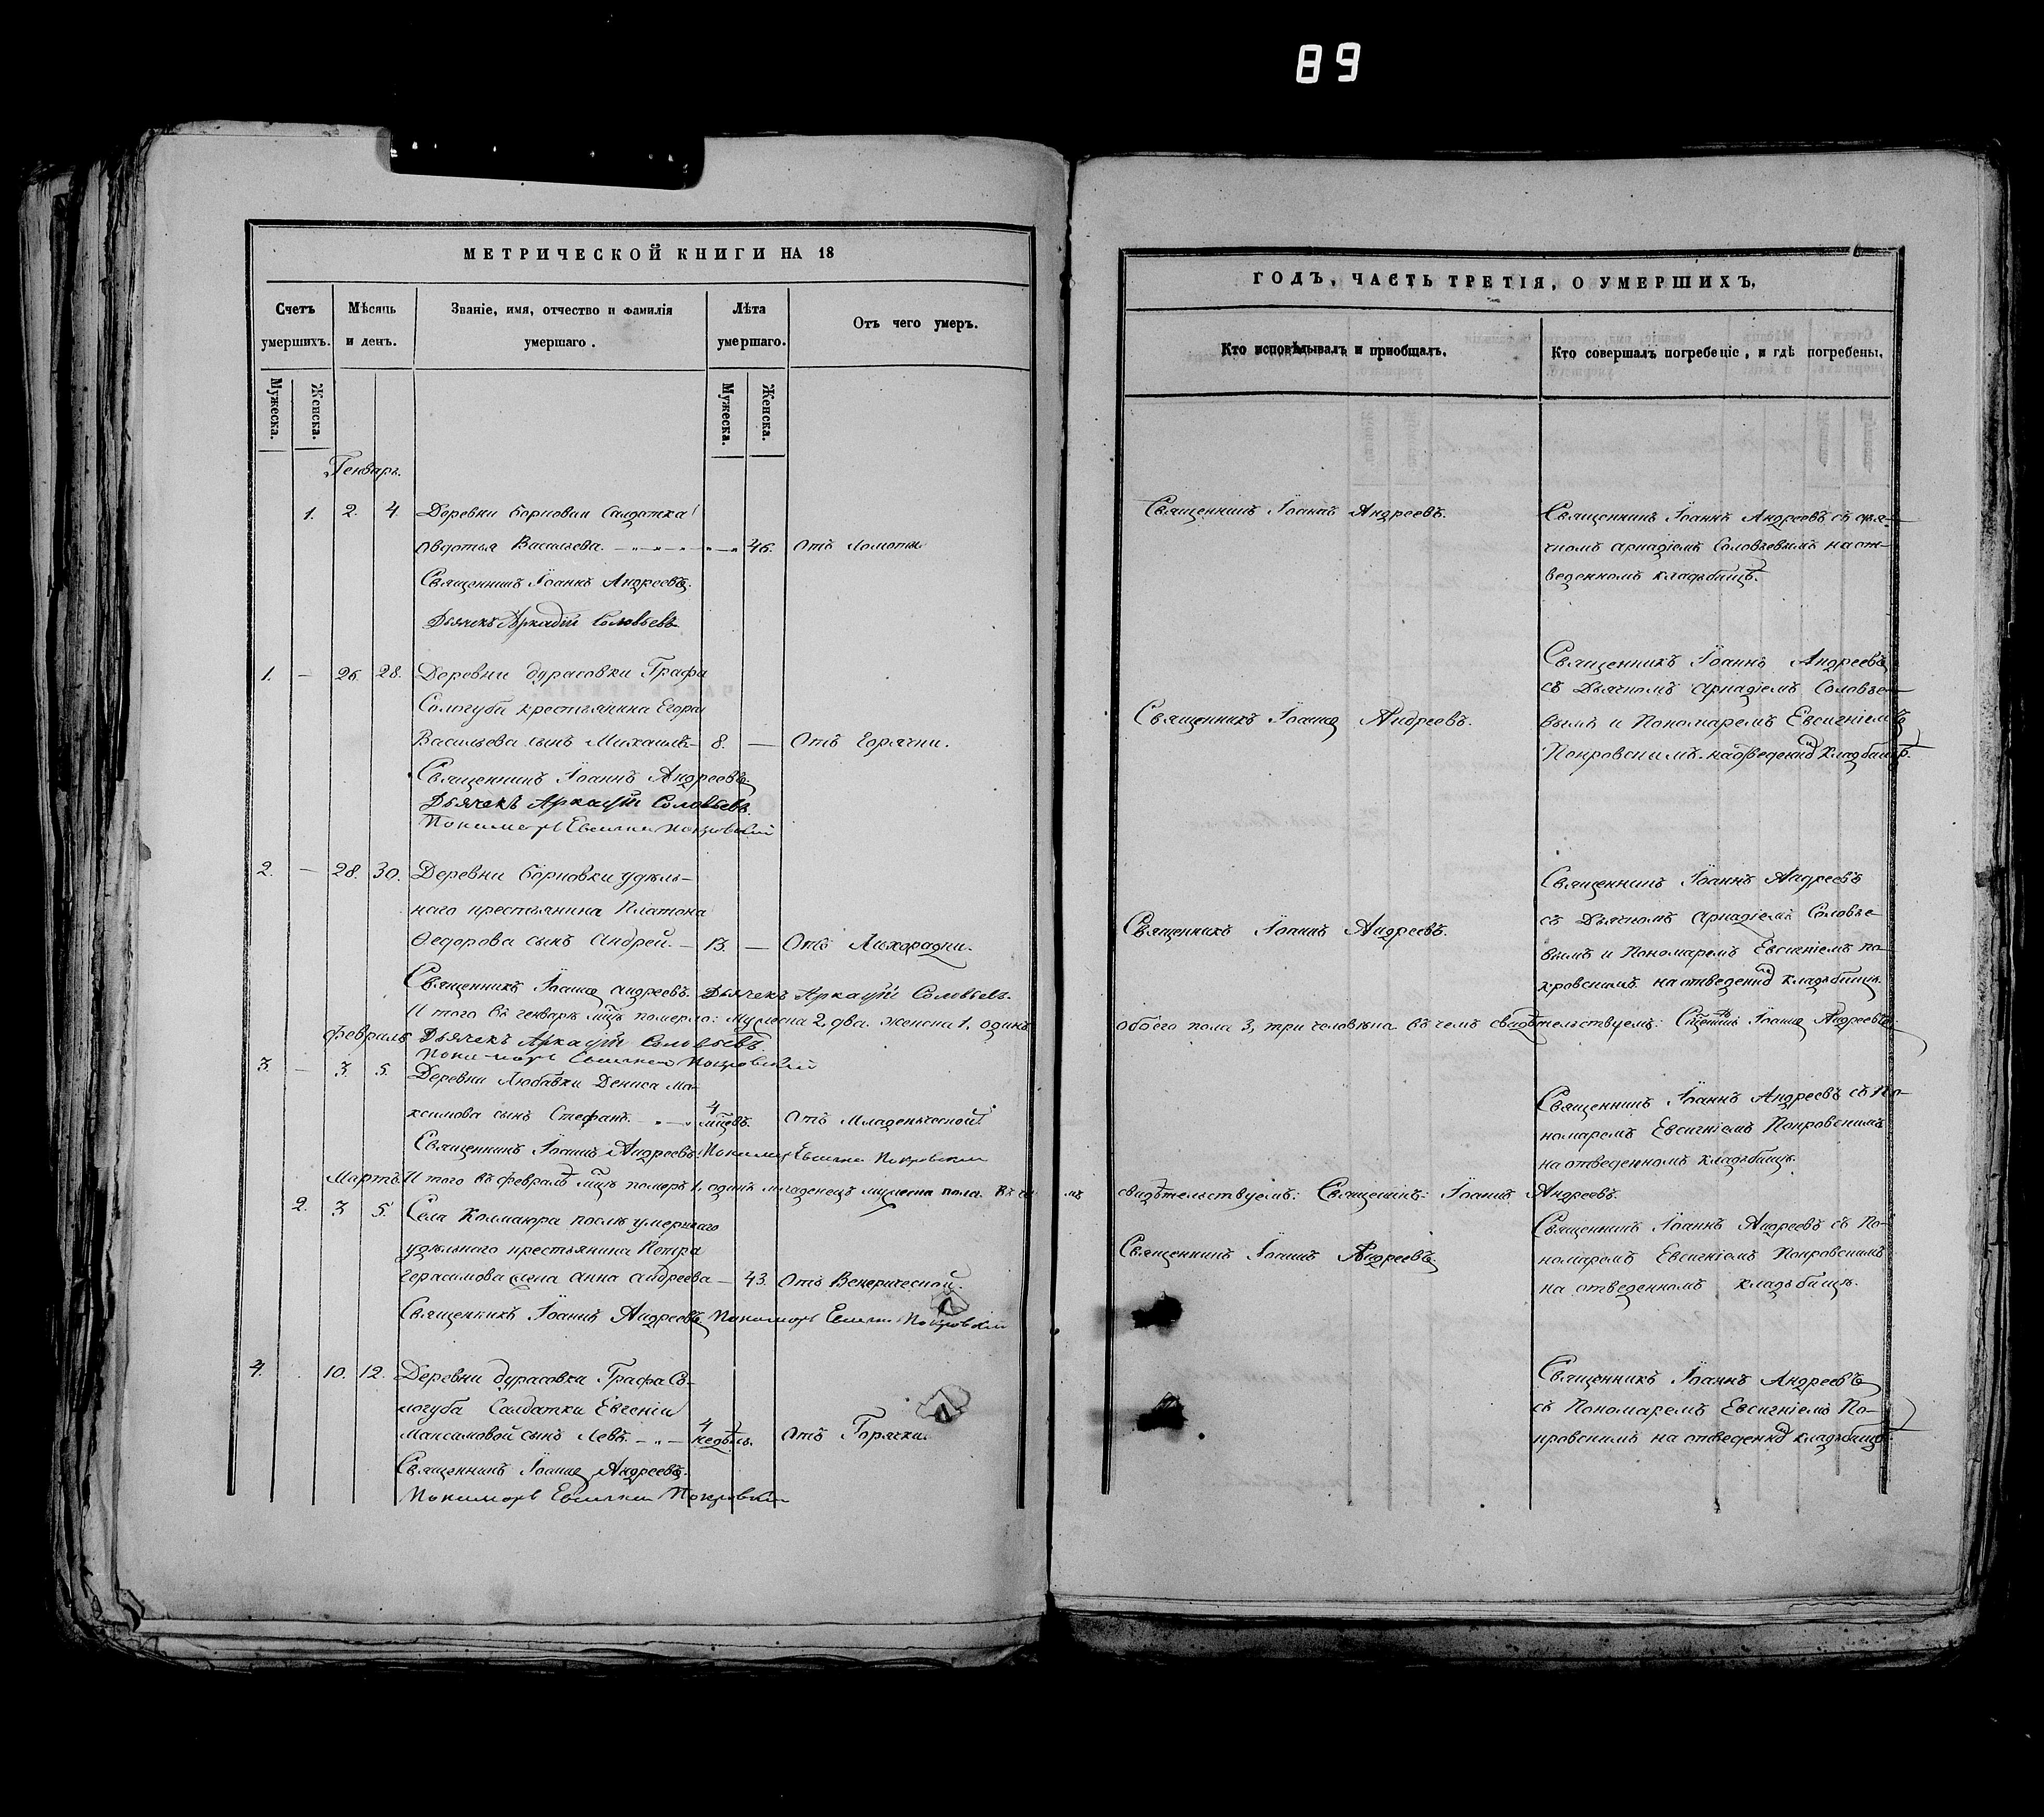 89
МЕТРИЧЕСКОЙ КНИГИ НА 18
Счетъ умершихъ.
Мѣсяць и день.
Званіе, имя, отчество и фамилія умершаго.
Лѣта умершаго.
Отъ чего умеръ.
Мужеска.
Женска.
Мужеска.
Женска.
Генварь.
1. 2. 4. Деревни Борновки Салдатка
Овдотья Васильева. 46. Отъ Ломоты
Священникъ Іоаннъ Андреевъ.
Дьячекъ Аркадій Соловьевъ.
1. — 26. 28. Деревни Дурасовки Графа
Сологуба крестьянина Егора
Васильева сынъ Михаилъ — 8. — Отъ Горячки.
Священникъ Іоаннъ Андреевъ.
Дьячекъ Аркадій Соловьевъ.
Пономарь Евсигней Покровскій
2. — 28. 30. Деревни Борновки удѣль-
наго крестьянина Платона
Ѳедорова сынъ Андрей. — 13. — Отъ Лихорадки.
Священникъ Іоаннъ Андреевъ. Дьячекъ Аркадій Соловьевъ.
И того въ генварѣ м͠цѣ померло: мужеска 2, два. женска 1, одинъ
Февраль Дьячекъ Аркадій Соловьевъ.
Пономарь Евсигней Покровскій
3. — 3. 5. Деревни Любавки Дениса Ма-
ксимова сынъ Стефанъ. 4 мцевъ. Отъ Младенческой
Священникъ Іоаннъ Андреевъ. Пономарь Евсигней Покровскій
Мартъ И того въ февралѣ мцѣ померъ 1, одинъ младенецъ мужеска пола. Въ че
2. 3 5. Села Колмаюра послѣ умершаго
удѣльнаго крестьянина Петра
Герасимова жена Анна Андреева — 43. Отъ Венерической.
Священникъ Іоаннъ Андреевъ Пономарь Евсигней Покровскій
4. 10. 12. Деревни Дурасовки Графа Со-
логуба Салдатки Евгеніи
Максимовой сынъ Левъ. — 4 недѣль. Отъ Горячки.
Священникъ Іоаннъ Андреевъ.
Пономарь Евсигней Покровскій
ГОДЪ, ЧАСТЬ ТРЕТІЯ, О УМЕРШИХЪ.
Кто исповѣдывалъ и пріобщалъ.
Кто совершалъ погребеніе, и гдѣ погребены.
Священникъ Іоаннъ Андреевъ.
Священникъ Іоаннъ Андреевъ съ дья-
чкомъ Аркадіемъ Соловьевымъ на от-
веденномъ кладьбищѣ.
Священникъ Іоаннъ Андреевъ.
Священникъ Іоаннъ Андреевъ
съ Дьячкомъ Аркадіемъ Соловье-
вымъ и Пономаремъ Евсигніемъ
Покровскимъ на отведенно кладбищѣ.
Священникъ Іоаннъ Андреевъ.
Священникъ Іоаннъ Андреевъ
съ Дьячкомъ Аркадіемъ Соловье-
вымъ и Пономаремъ Евсигніемъ По-
кровскимъ на отведенно кладьбищѣ.
обоего пола 3, три человѣка въ чемъ свидѣтельствуемъ: Сщенникъ Іоаннъ Андреевъ.
Священникъ Іоаннъ Андреевъ съ По-
номаремъ Евсигніемъ Покровскимъ
на отведенномъ кладьбищѣ.
мъ свидѣтельствуемъ: Священникъ: Іоаннъ Андреевъ.
Священникъ Іоаннъ Андреевъ
Священникъ Іоаннъ Андреевъ съ По-
номаремъ Евсигніемъ Покровскимъ
на отведенномъ кладьбищѣ.
Священникъ Іоаннъ Андреевъ
съ Пономаремъ Евсигніемъ По-
кровскимъ на отведенно кладьбищѣ.